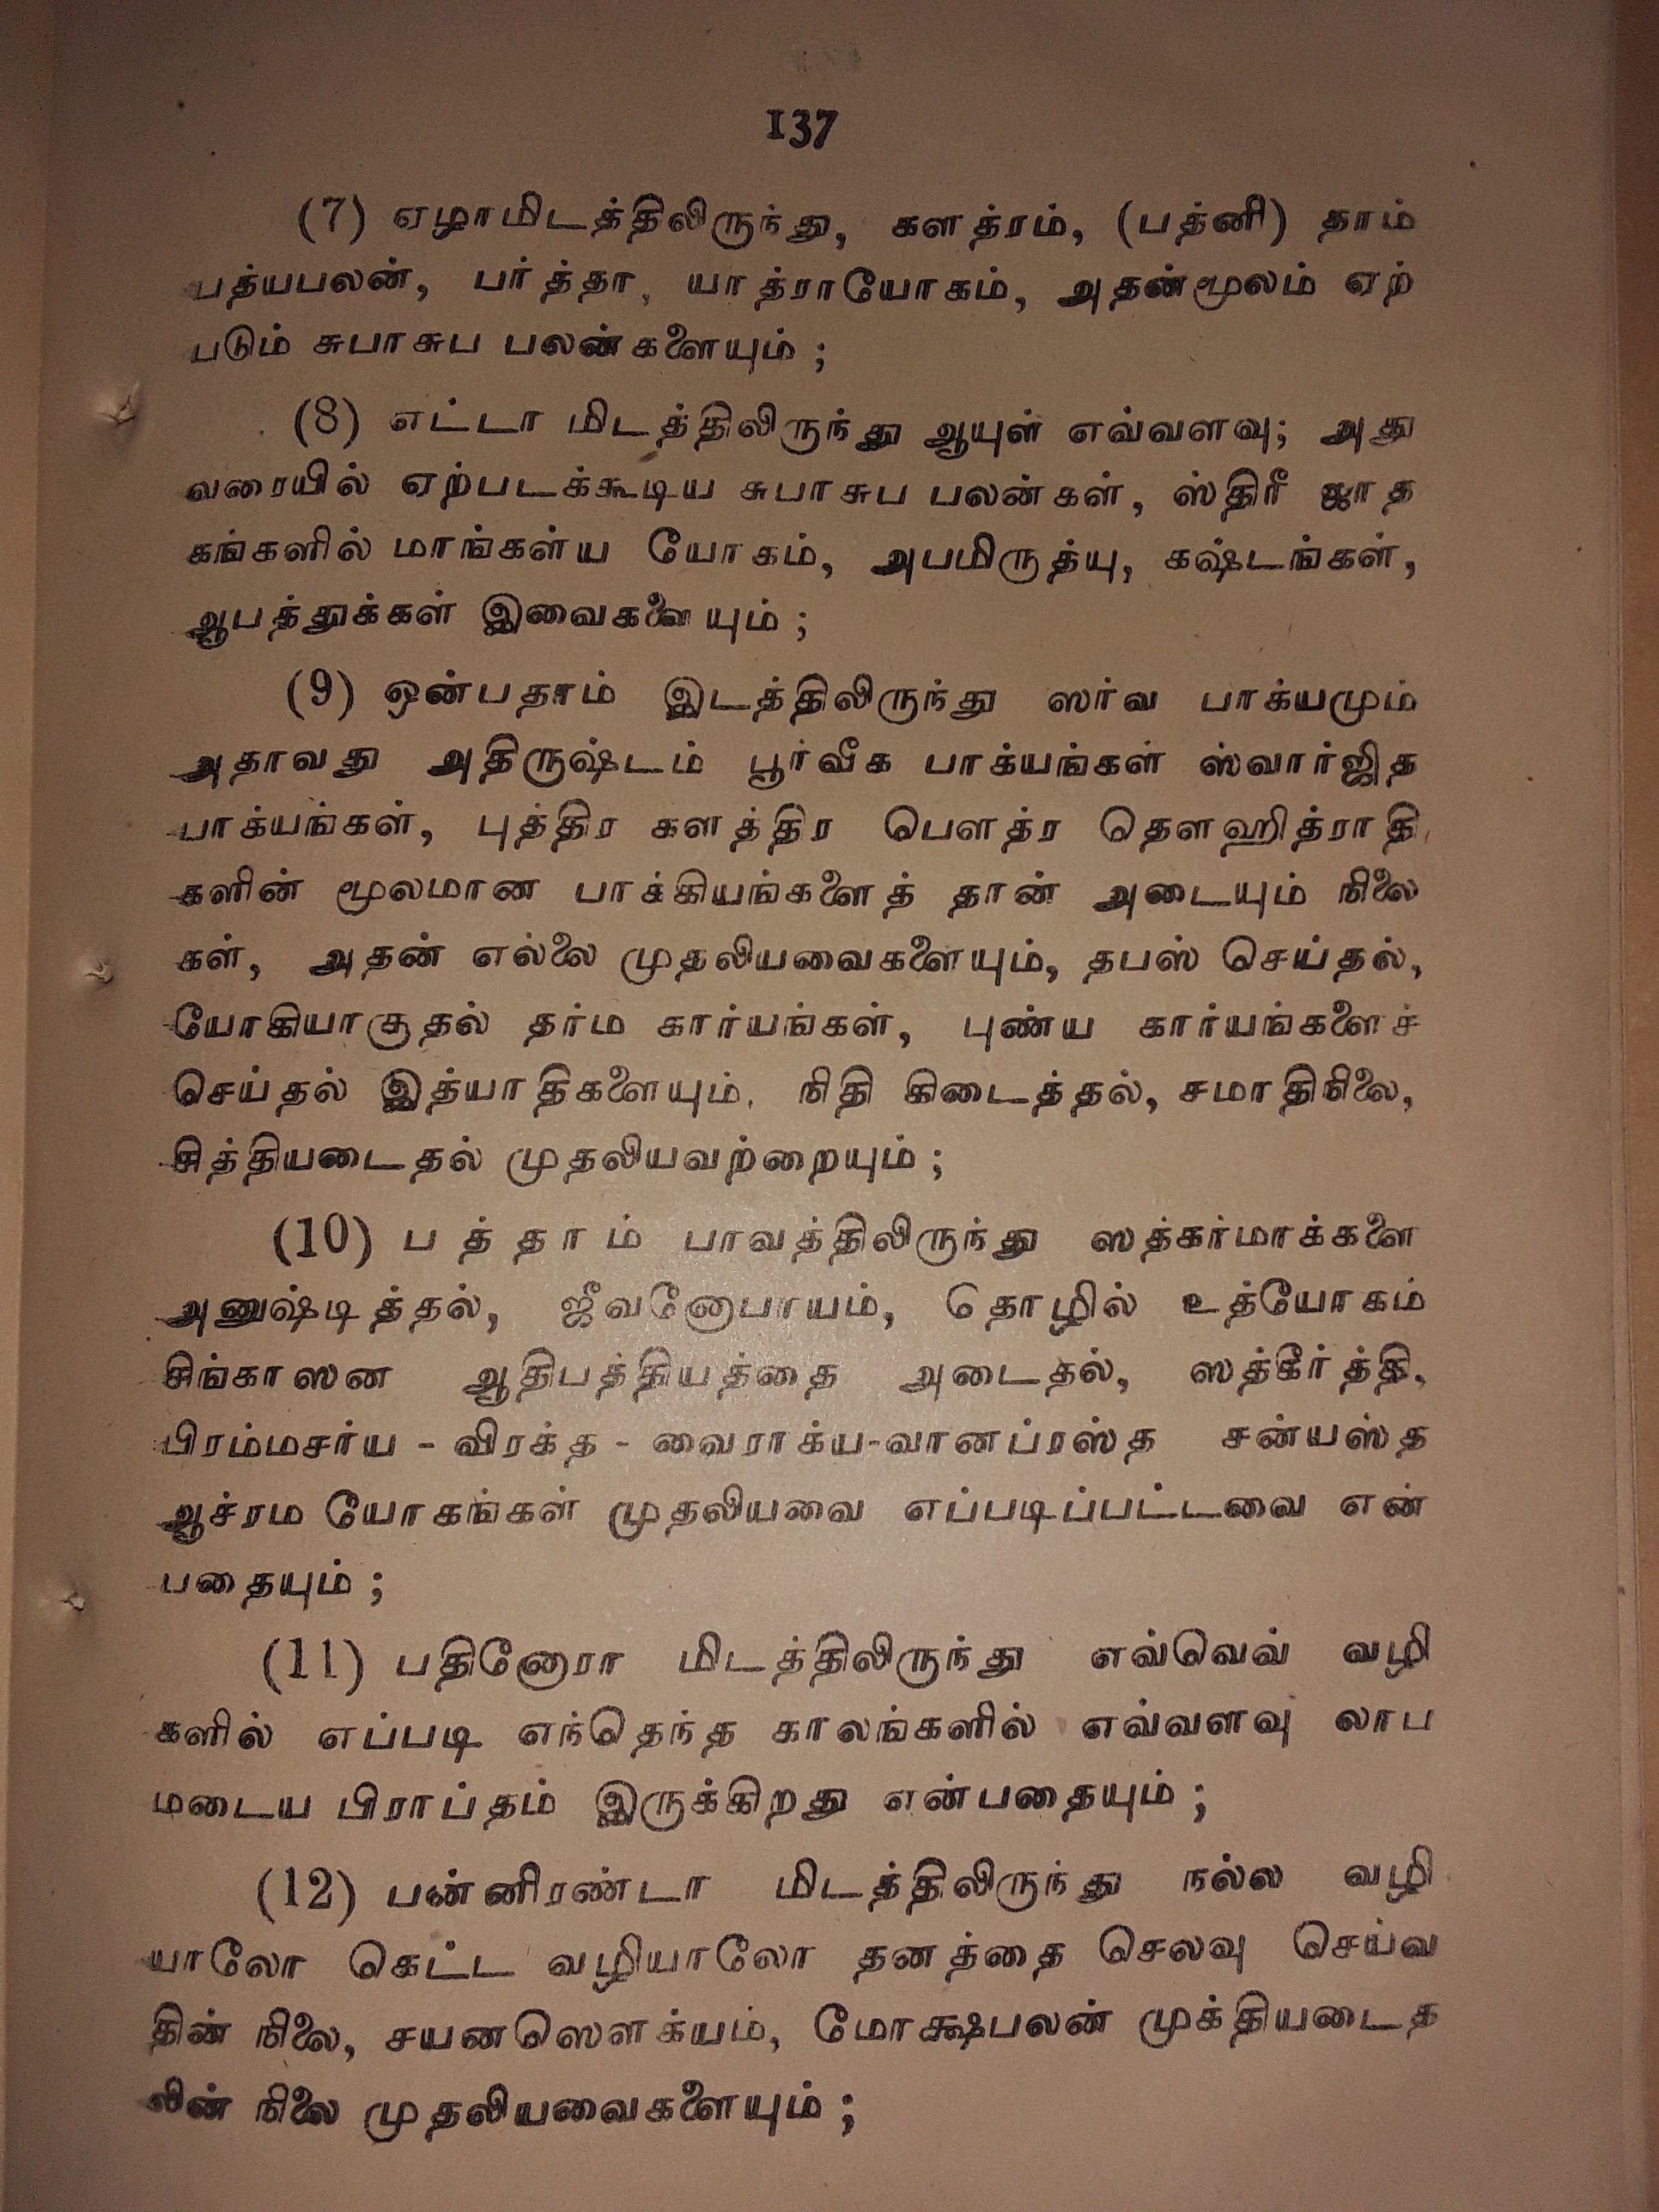 137
(7) ஏழாமிடத்திலிருந்து, களத்ரம், (பத்னி) தாம்
பத்யபலன், பர்த்தா, யாத்ராயோகம், அதன்மூலம் ஏற்
படும் சுபாசுப பலன்களையும் ;
(8) எட்டா மிடத்திலிருந்து ஆயுள் எவ்வளவு; அது
வரையில் ஏற்படக்கூடிய சுபாசுப பலன்கள், ஸ்திரீ ஜாத
கங்களில் மாங்கள்ய யோகம், அபமிருத்யு, கஷ்டங்கள்,
ஆபத்துக்கள் இவைகளையும் ;
(9) ஒன்பதாம் இடத்திலிருந்து ஸர்வ பாக்யமும்
அதாவது அதிருஷ்டம் பூர்வீக பாக்யங்கள் ஸ்வார்ஜித
பாக்யங்கள், புத்திர களத்திர பௌத்ர தௌஹித்ராதி
களின் மூலமான பாக்கியங்களைத் தான் அடையும் நிலை
கள், அதன் எல்லை முதலியவைகளையும், தபஸ் செய்தல்,
யோகியாகுதல் தர்ம கார்யங்கள், புண்ய கார்யங்களைச்
செய்தல் இத்யாதிகளையும். நிதி கிடைத்தல், சமாதிநிலை,
சித்தியடைதல் முதலியவற்றையும் ;
(10) பத்தாம் பாவத்திலிருந்து ஸத்கர்மாக்களை
அனுஷ்டித்தல், ஜீவனோபாயம், தொழில் உத்யோகம்
சிங்காஸன ஆதிபத்தியத்தை அடைதல், ஸத்கீர்த்தி,
பிரம்மசர்ய - விரக்த - வைராக்ய-வானப்ரஸ்த சன்யஸ்த
ஆச்ரம யோகங்கள் முதலியவை எப்படிப்பட்டவை என்
பதையும் ;
(11) பதினோரா மிடத்திலிருந்து எவ்வெவ் வழி
களில் எப்படி எந்தெந்த காலங்களில் எவ்வளவு லாப
மடைய பிராப்தம் இருக்கிறது என்பதையும் ;
(12) பன்னிரண்டா மிடத்திலிருந்து நல்ல வழி
யாலோ கெட்ட வழியாலோ தனத்தை செலவு செய்வ
தின் நிலை, சயனஸௌக்யம், மோக்ஷபலன் முக்தியடைத
லின் நிலை முதலியவைகளையும் ;